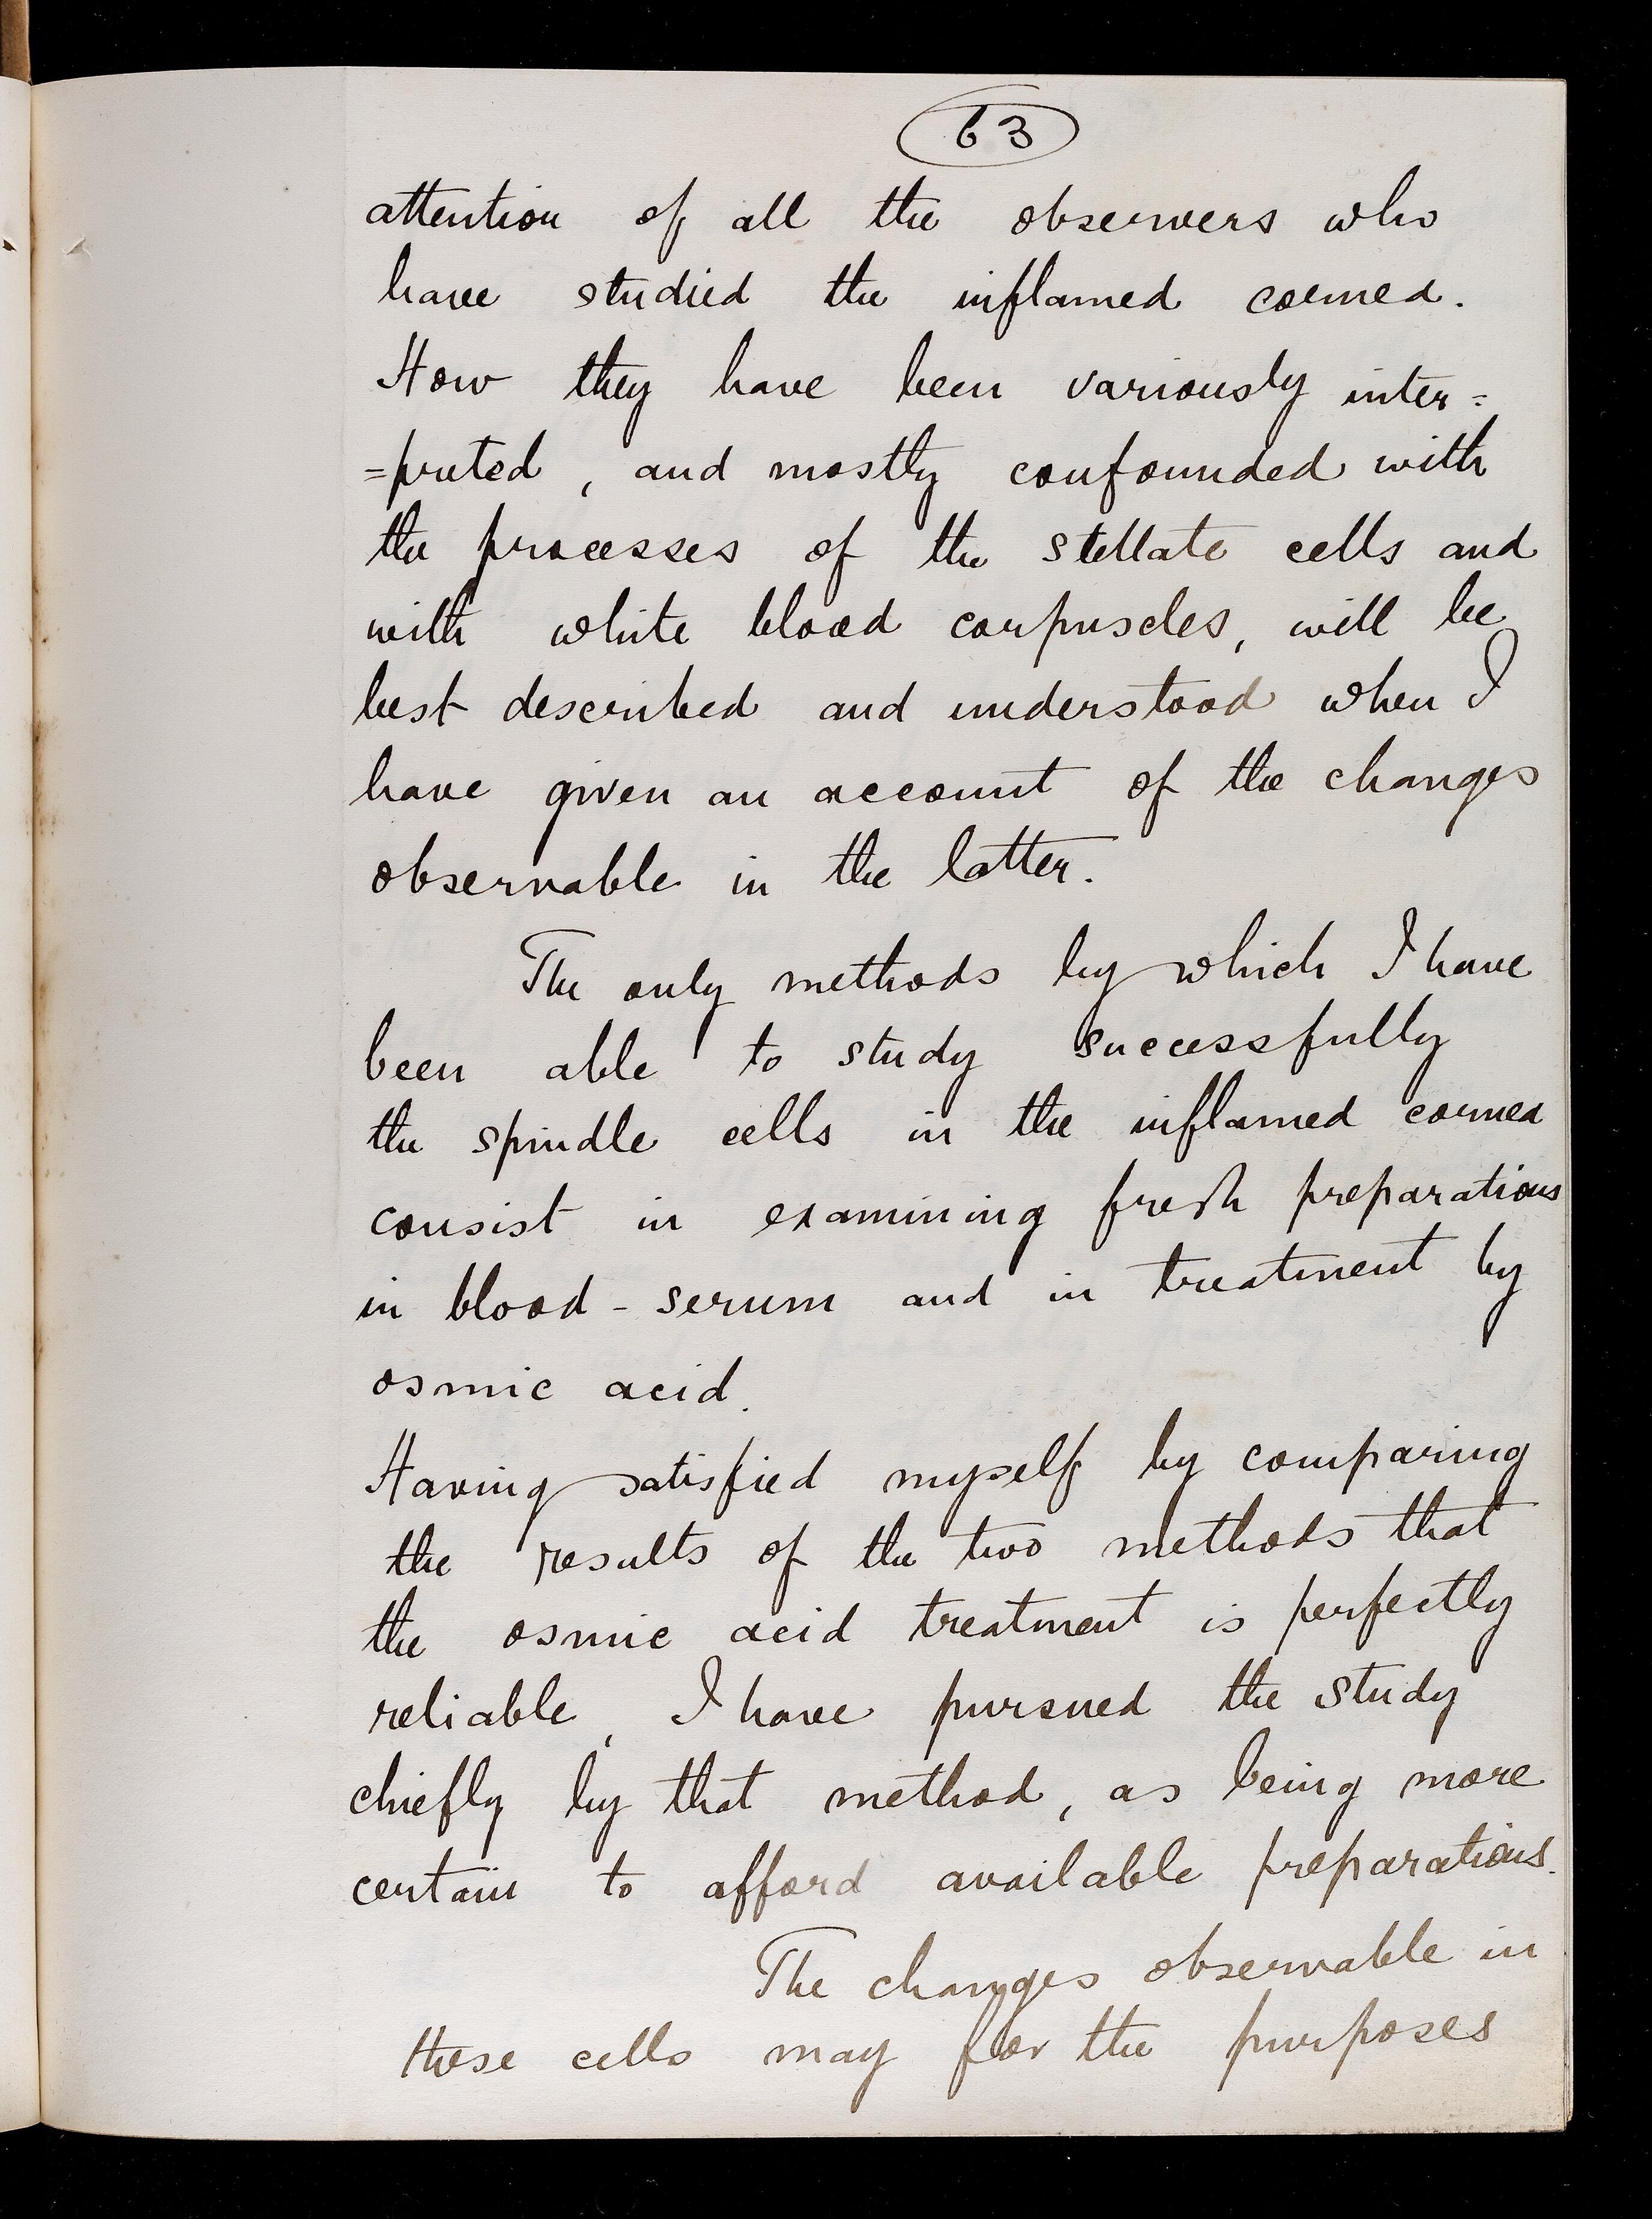 63
attention of all the observers who
have studied the inflamed cornea.
How they have been variously inter=
=preted, and mostly confounded with
the processes of the stellate cells and
with white blood corpuscles, will be
best described and understood when I
have given an account of the changes
observable in the latter.
The only methods by which I have
been able to study successfully
the spindle cells in the inflamed cornea
consist in examining fresh preparations
in blood-serum and in treatment by
osmic acid.
Having satisfied myself by comparing
the results of the two methods that
the osmic acid treatment is perfectly
reliable, I have pursued the study
chiefly by that method, as being more
certain to afford available preparations.
The changes observable in
these cells may for the purposes